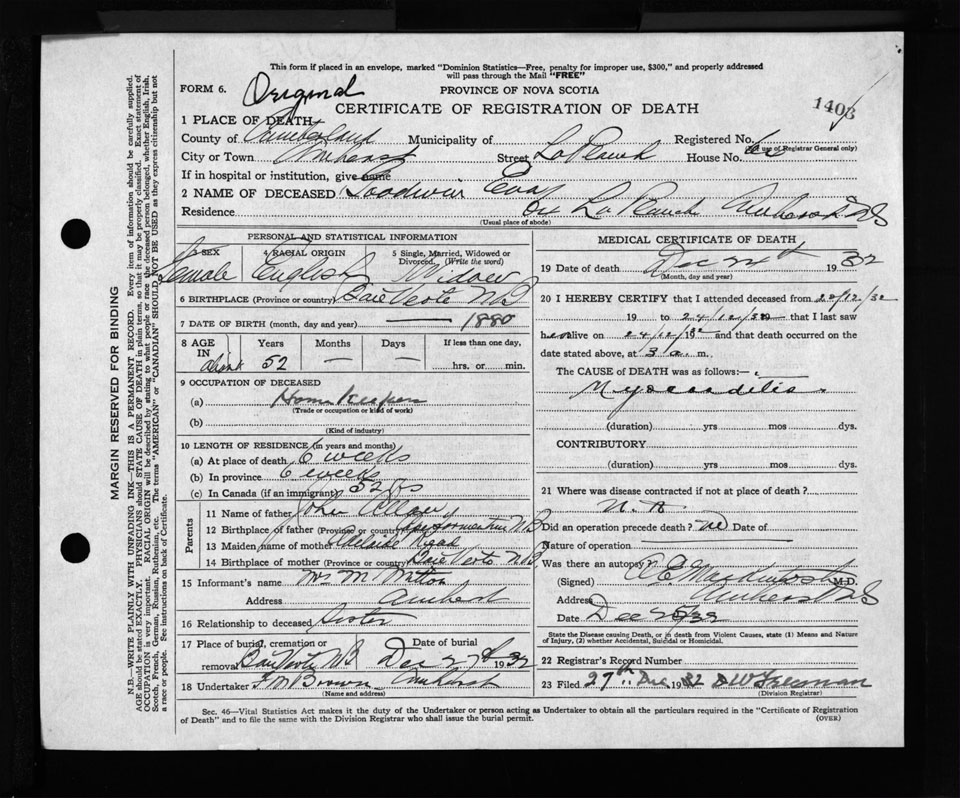 This form if placed in an envelope, marked "Dominion Statistics—Free, penalty for improper use, $300," and properly addressed
will pass through the Mail "FREE"
FORM 6. Original PROVINCE OF NOVA SCOTIA
CERTIFICATE OF REGISTRATION OF DEATH 1403
1 PLACE OF DEATH
County of Cumberland Municipality of Registered No.
(For use of Registrar General only)
City or Town Amherst Street LaPlanch House No. 66
If in hospital or institution, give name
2 NAME OF DECEASED Goodwin Eva
Residence La Planche Amherst NS
(Usual place of abode)
PERSONAL AND STATISTICAL INFORMATION
3 SEX 4 RACIAL ORIGIN 5 Single, Married, Widowed or Divorced. (Write the word)
Female English Widow
6 BIRTHPLACE (Province or country) Baie Verte NB
7 DATE OF BIRTH (month, day and year) — 1880
8 AGE IN Years Months Days If less than one day,
about 52 — — hrs. or min.
9 OCCUPATION OF DECEASED
(a) Home Keeper
(Trade or occupation or kind of work)
(b)
(Kind of industry)
10 LENGTH OF RESIDENCE (in years and months)
(a) At place of death 6 weeks
(b) In province 6 weeks
(c) In Canada (if an immigrant) 52 yrs
Parents
11 Name of father John
12 Birthplace of father (Province or country) Cape Tormentine NB
13 Maiden name of mother
14 Birthplace of mother (Province or country) Baie Verte NB
15 Informant's name Mrs M
Address Amherst
16 Relationship to deceased Sister
17 Place of burial, cremation or removal Baie Verte NB Date of burial Dec 27th 1932
18 Undertaker F M Brown Amherst
(Name and address)
MEDICAL CERTIFICATE OF DEATH
19 Date of death Dec 24th 1932
(Month, day and year)
20 I HEREBY CERTIFY that I attended deceased from 22/12/32
19 to 24/12/32 19 that I last saw
her alive on 24/12/32 19 and that death occurred on the
date stated above, at 3 a. m.
The CAUSE of DEATH was as follows:—
Myocarditis
(duration) yrs mos dys.
CONTRIBUTORY
(duration) yrs mos dys.
21 Where was disease contracted if not at place of death?
Did an operation precede death? no Date of
Nature of operation
Was there an autopsy
(Signed) C E MacKintosh M.D.
Address Amherst NS
Date Dec 25/32
State the Disease causing Death, or in death from Violent Causes, state (1) Means and Nature
of Injury, (2) whether Accidental, Suicidal or Homicidal.
22 Registrar's Record Number
23 Filed 27th Dec 1932 DW Freeman
(Division Registrar)
Sec. 46—Vital Statistics Act makes it the duty of the Undertaker or person acting as Undertaker to obtain all the particulars required in the "Certificate of Registration
of Death" and to file the same with the Division Registrar who shall issue the burial permit. (OVER)
MARGIN RESERVED FOR BINDING
N.B.—WRITE PLAINLY WITH UNFADING INK—THIS IS A PERMANENT RECORD. Every item of information should be carefully supplied.
AGE should be stated EXACTLY. PHYSICIANS should STATE CAUSE OF DEATH in plain terms, so that it may be properly classified. Exact statement of
OCCUPATION is very important. RACIAL ORIGIN will be described by stating to what people or race the deceased person belonged, whether English, Irish,
Scotch, French, German, Russian, Ruthenian, etc. The terms "AMERICAN" or "CANADIAN" SHOULD NOT BE USED as they express citizenship but not
a race or people. See instructions on back of Certificate.